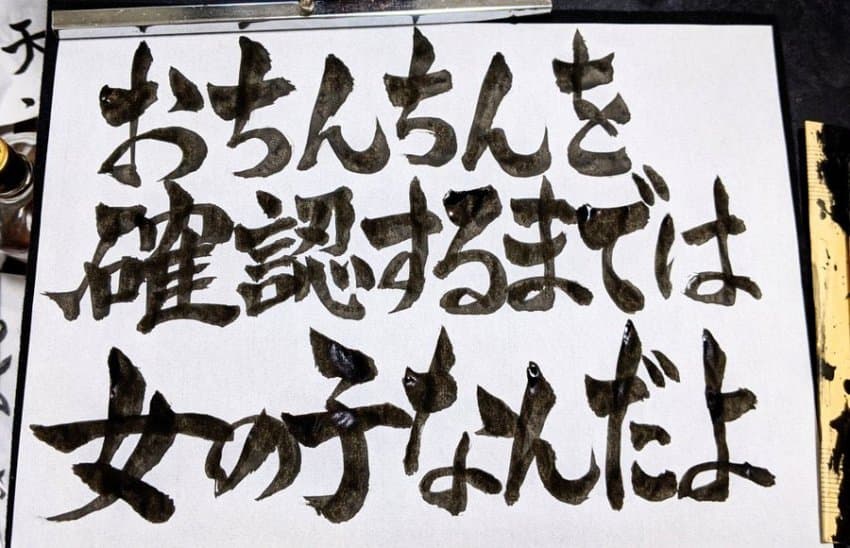 おちんちんを
確認するまでは
女の子なんだよ
天